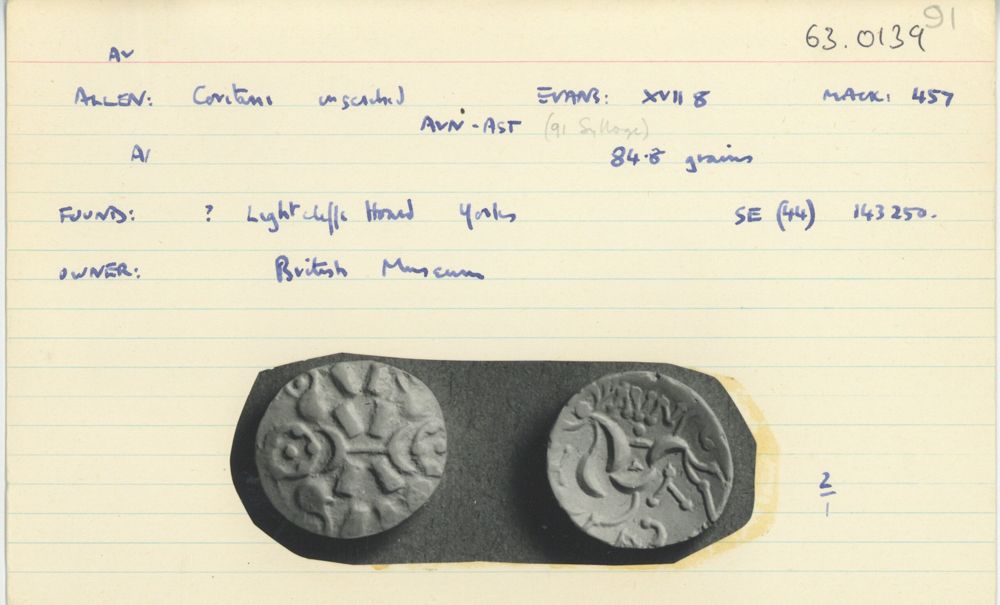 91
63.0139
AV
ALLEN: Coritani inscribed EVANS: XVII 8 MACK: 457
AVN·AST (91 Sylloge)
A/ 84.8 grains
FOUND: ? Lightcliffe Hoard Yorks SE (44) 143250.
OWNER: British Museum
AVN
2/1